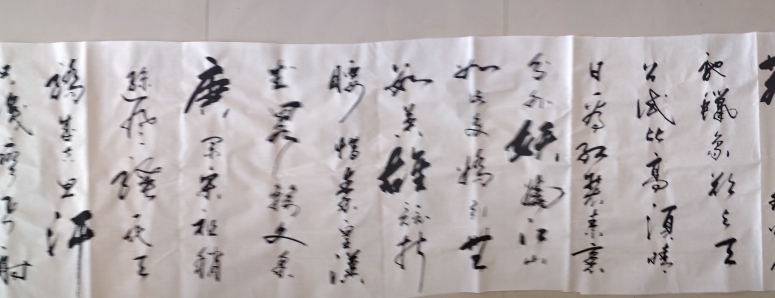 驰蠟象欲与天
公试比高須晴
日看红装素裹
分外妖娆江山
如此多嬌引無
数英雄競折
腰惜秦皇漢
武畧輸文采
唐宗宋祖稍
遜风骚一代天
驕成吉思汗
只識弯弓射